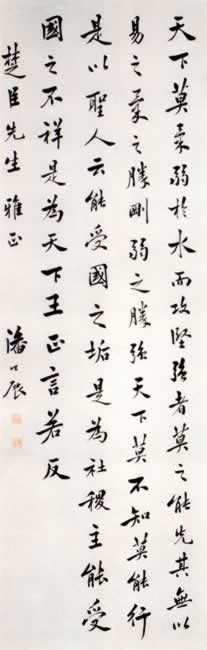 天下莫柔弱於水而攻堅強者莫之能先其無以
易之柔之勝剛弱之勝強天下莫不知莫能行
是以聖人云能受國之垢是為社稷主能受
國之不祥是為天下王正言若反
楚臣先生雅正
潘公展